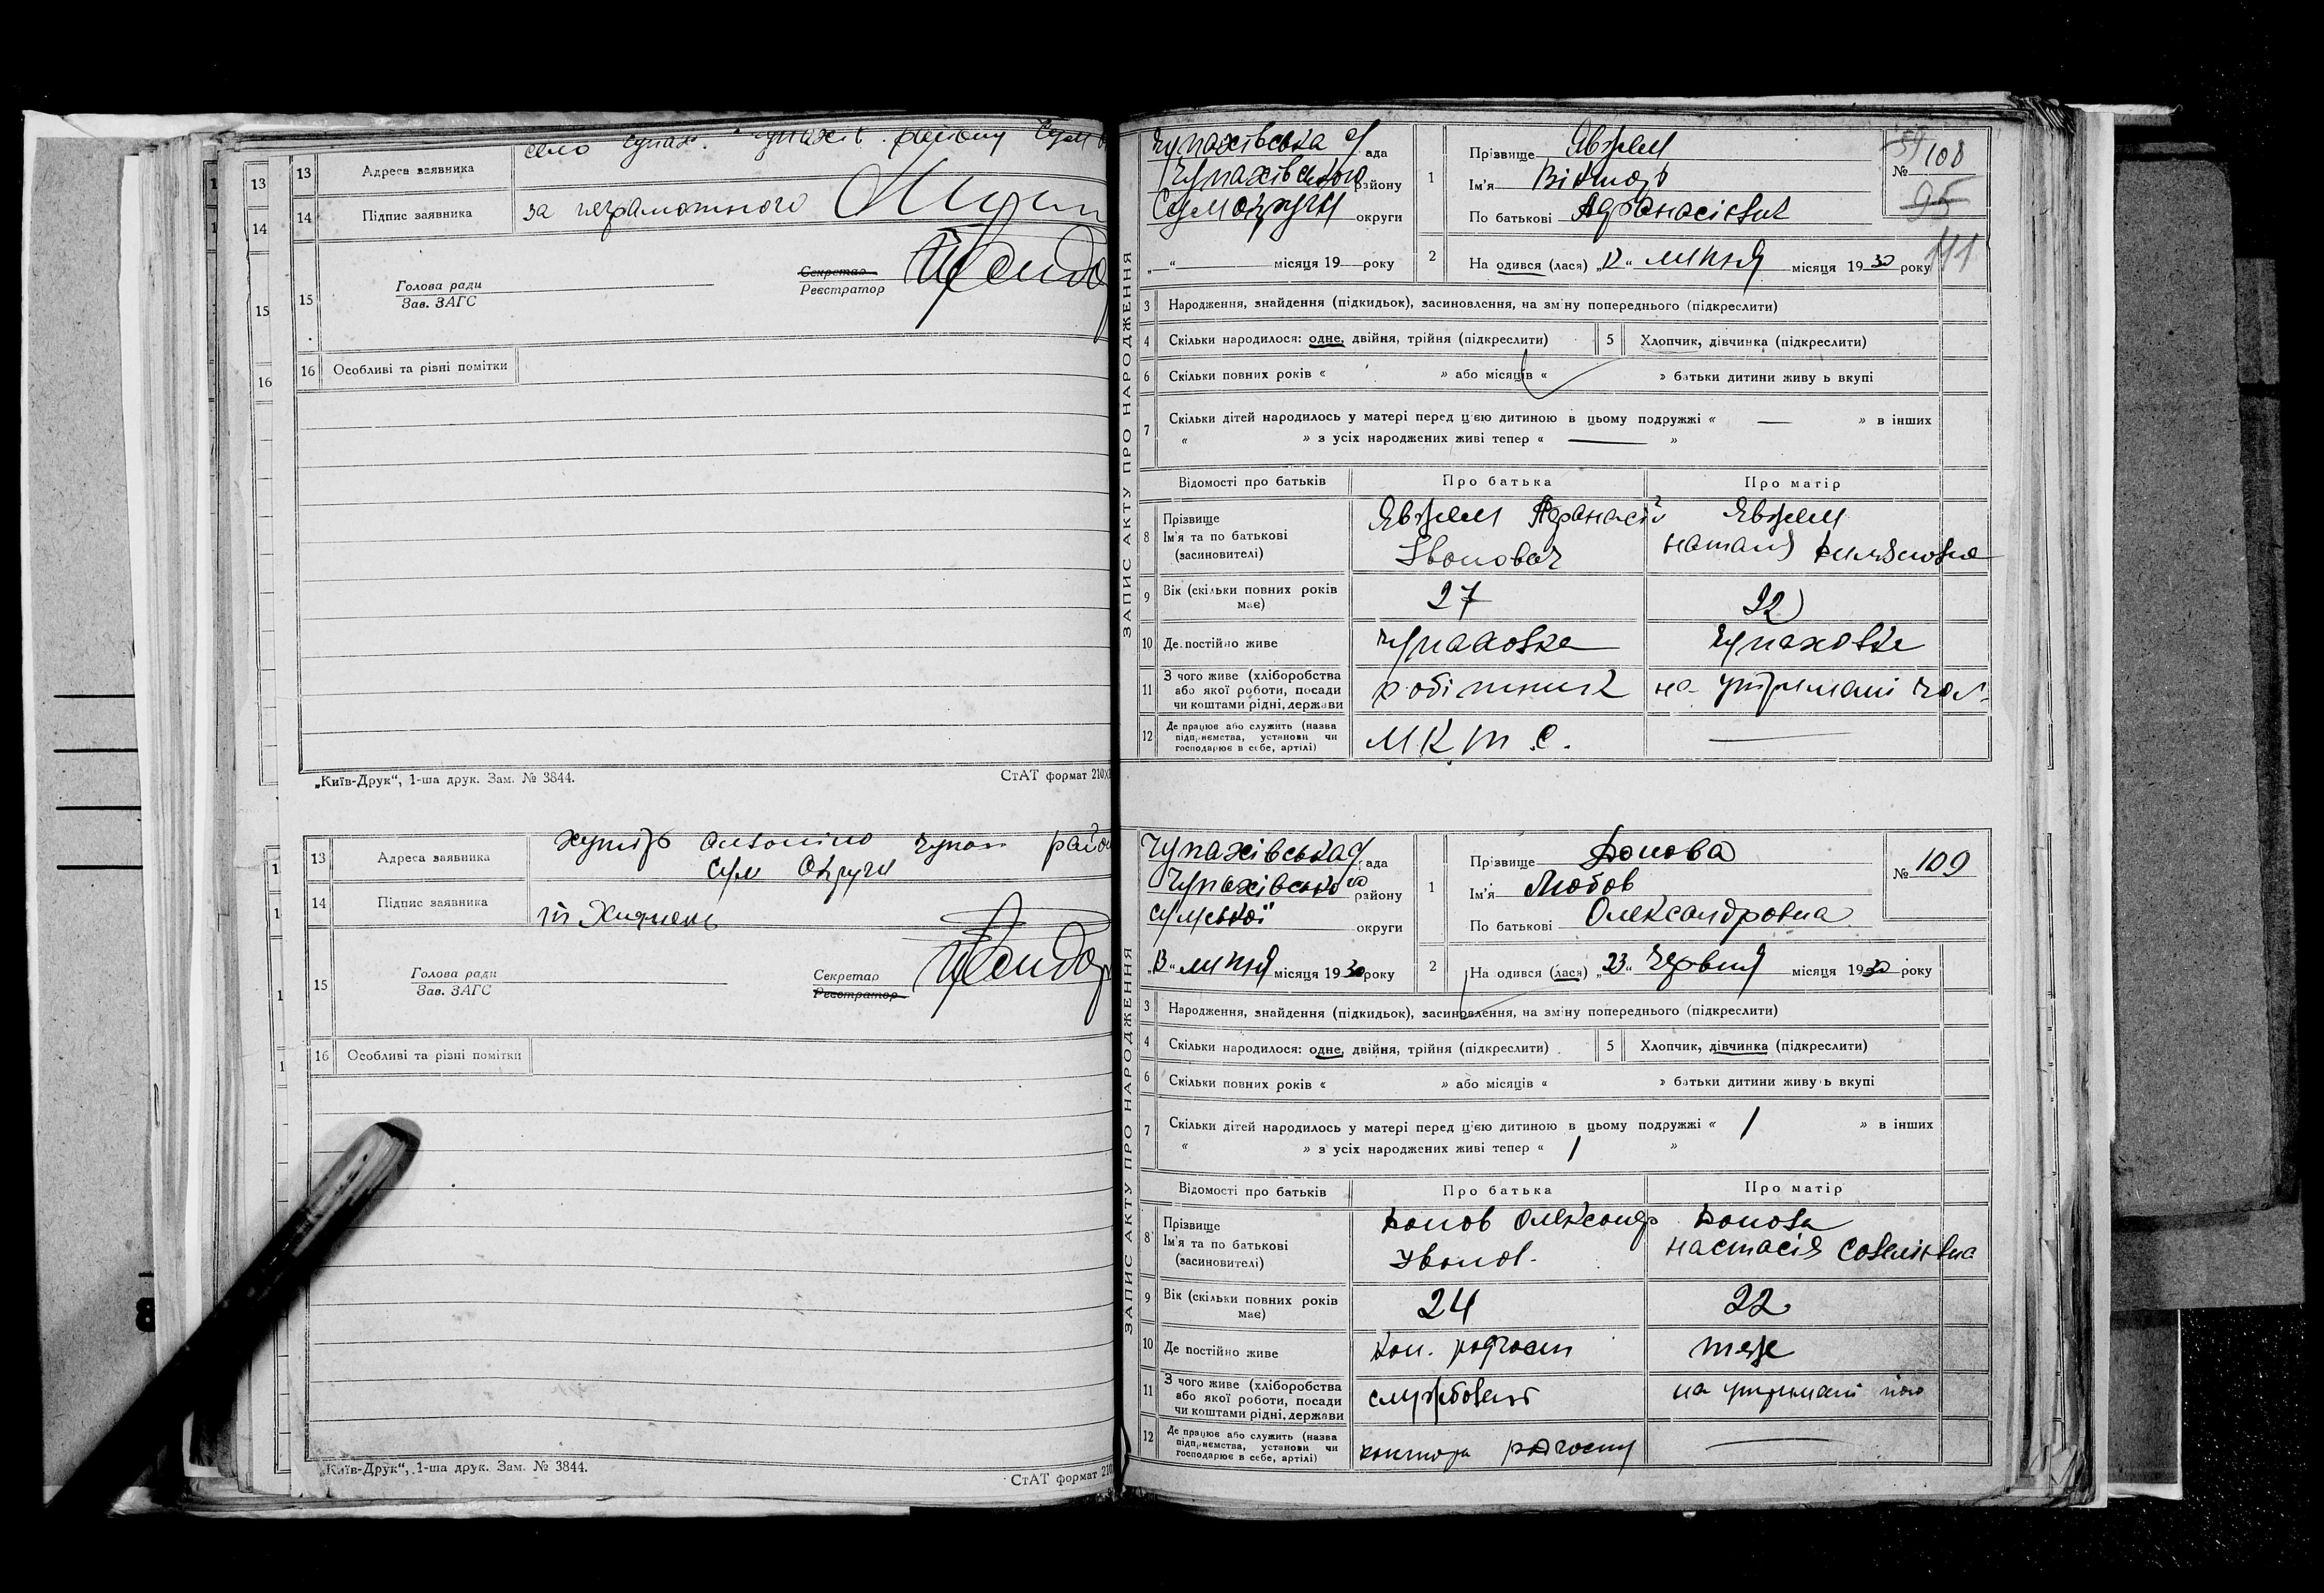 13 Адреса заявника
село
району
14 Підпис заявника
за неграмотного
15 Голова ради
Зав. ЗАГС
Секретар
Реєстратор
16 Особливі та різні помітки
„Київ-Друк“, 1-ша друк. Зам. № 3844.
СтАТ формат 210
13 Адреса заявника
хутір
Сум Округи
14 Підпис заявника
15 Голова ради
Зав. ЗАГС
Секретар
Реєстратор
16 Особливі та різні помітки
„Київ-Друк“, 1-ша друк. Зам. № 3844.
СтАТ формат 210
ЗАПИС АКТУ ПРО НАРОДЖЕННЯ
Чупахівська с/рада
Чупахівського району
Сумокруги округи
„—“ місяця 19— року
1 Прізвище
Ім'я Віктор
По батькові Афанасієвич
№ 108
95
111
2 На одився (лася) „12“ липня місяця 1930 року
3 Народження, знайдення (підкидьок), засиновлення, на зміну попереднього (підкреслити)
4 Скільки народилося: одне, двійня, трійня (підкреслити)
5 Хлопчик, дівчинка (підкреслити)
6 Скільки повних років « » або місяців « » батьки дитини живу ь вкупі
7 Скільки дітей народилось у матері перед цією дитиною в цьому подружжі « — » в інших
« » з усіх народжених живі тепер « — »
Відомості про батьків
Про батька
Про матір
8 Прізвище
Ім'я та по батькові
(засиновителі)
Афанасій
Іванович
Наталя
9 Вік (скільки повних років має)
27
22
10 Де постійно живе
Чупаховка
Чупаховке
11 З чого живе (хліборобства
або якої роботи, посади
чи коштами рідні, держави
робітник
на утриманні чол.
12 Де працює або служить (назва
підприємства, установи чи
господарює в себе, артілі)
М.К.т.С.
—
ЗАПИС АКТУ ПРО НАРОДЖЕННЯ
Чупахівська с/рада
Чупахівського району
Сумської округи
„13“ липня місяця 1930 року
1 Прізвище
Ім'я Любов
По батькові Олександровна
№ 109
2 На одився (лася) „23“ Червня місяця 1930 року
3 Народження, знайдення (підкидьок), засиновлення, на зміну попереднього (підкреслити)
4 Скільки народилося: одне, двійня, трійня (підкреслити)
5 Хлопчик, дівчинка (підкреслити)
6 Скільки повних років « » або місяців « » батьки дитини живу ь вкупі
7 Скільки дітей народилось у матері перед цією дитиною в цьому подружжі « 1 » в інших
« » з усіх народжених живі тепер « 1 »
Відомості про батьків
Про батька
Про матір
8 Прізвище
Ім'я та по батькові
(засиновителі)
Олександр
Іванов.
Настасія Савелієвна
9 Вік (скільки повних років має)
24
22
10 Де постійно живе
радгосп
теж
11 З чого живе (хліборобства
або якої роботи, посади
чи коштами рідні, держави
службовець
на утриманні його
12 Де працює або служить (назва
підприємства, установи чи
господарює в себе, артілі)
контора радгоспу
—